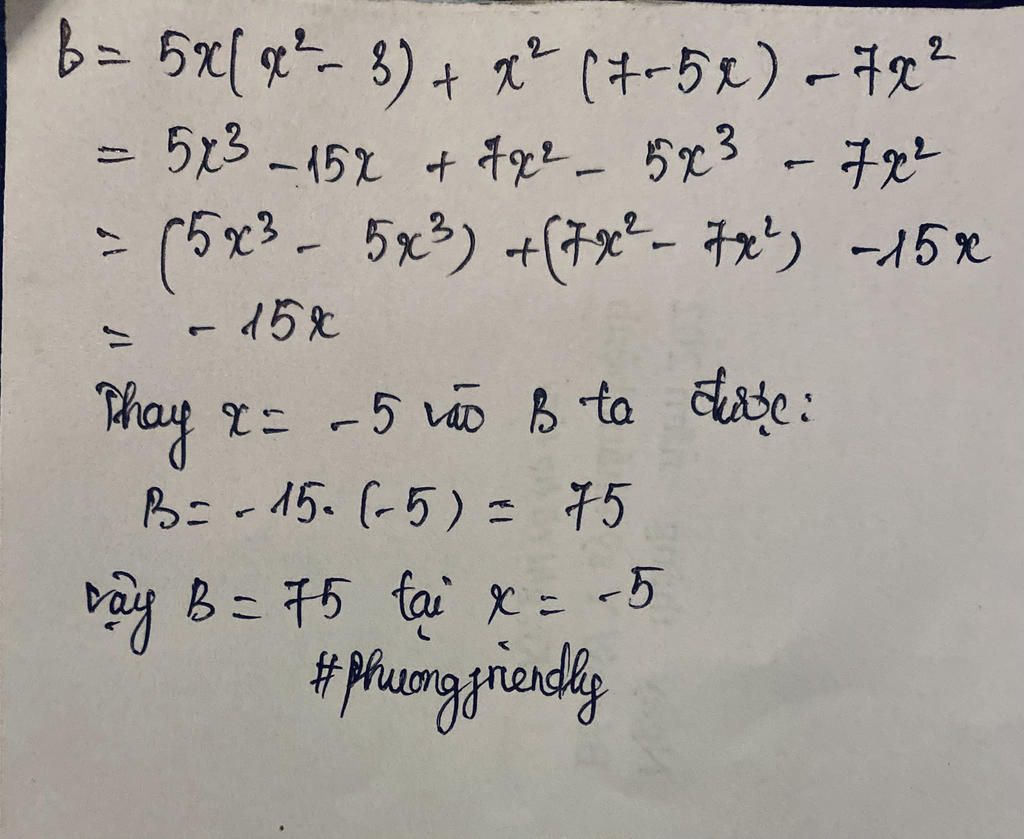 B = 5x(x² - 3) + x² (7-5x) - 7x²
= 5x³ - 15x + 7x² - 5x³ - 7x²
= (5x³ - 5x³) + (7x² - 7x²) - 15x
= - 15x
Thay x = -5 vào B ta được:
B = - 15. (-5) = 75
Vậy B = 75 tại x = -5
#phuongfriendly